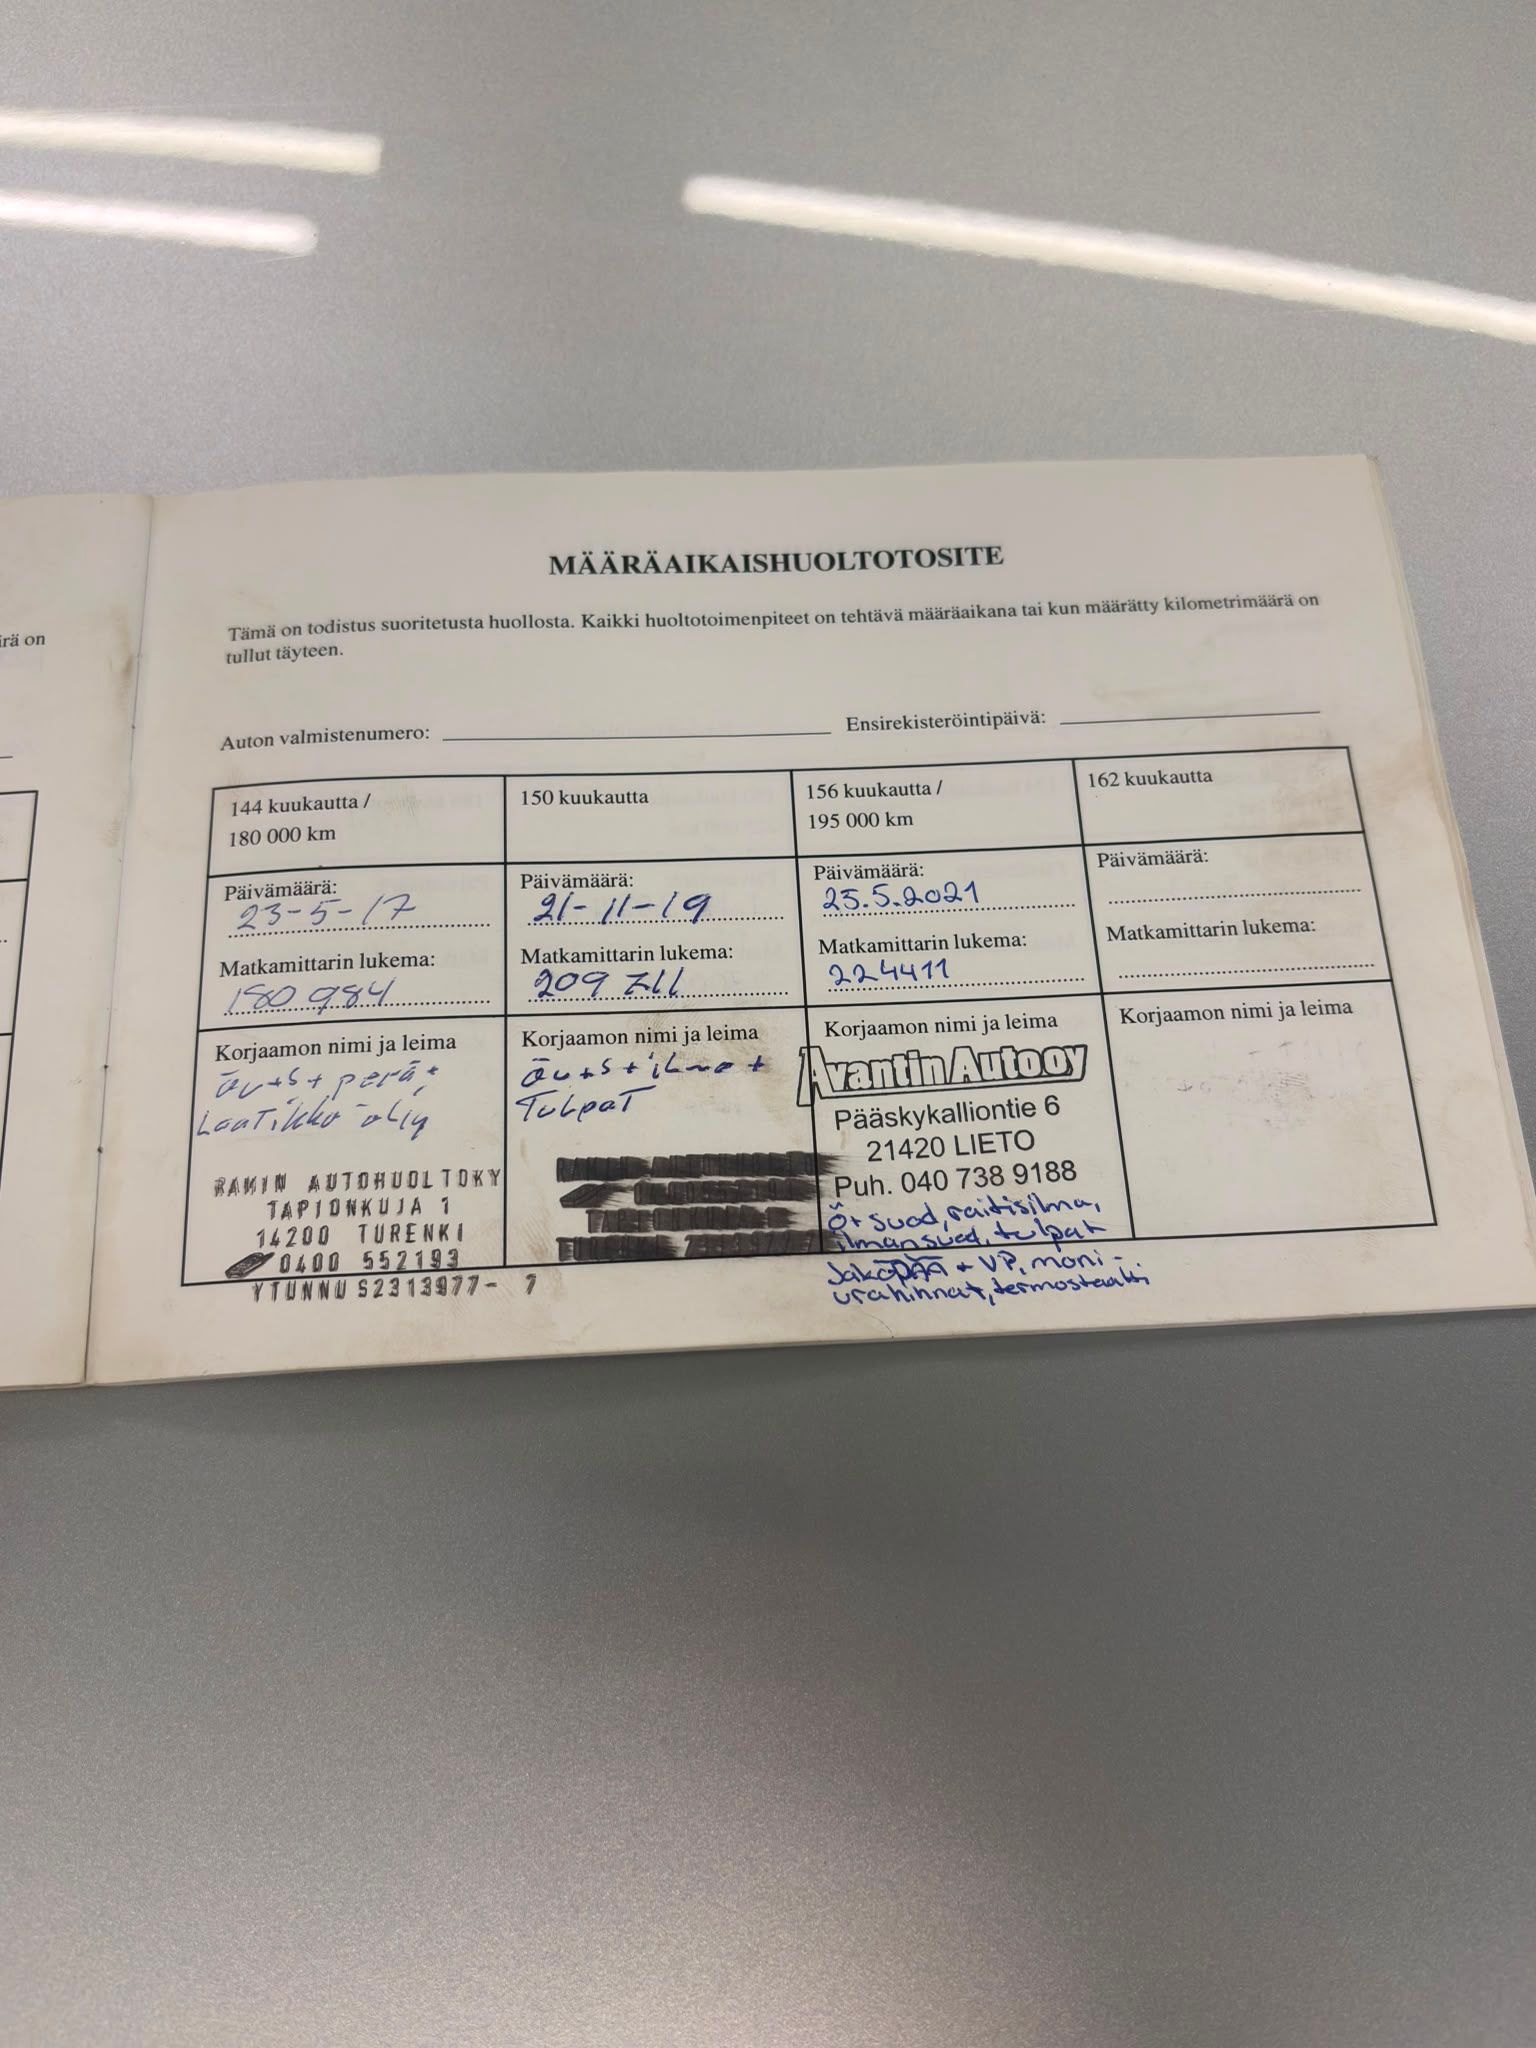 irä on
MÄÄRÄAIKAISHUOLTOTOSITE
Tämä on todistus suoritetusta huollosta. Kaikki huoltotoimenpiteet on tehtävä määräaikana tai kun määrätty kilometrimäärä on
tullut täyteen.
Auton valmistenumero:
Ensirekisteröintipäivä:
144 kuukautta /
180 000 km
Päivämäärä:
23-5-17
Matkamittarin lukema:
180 984
Korjaamon nimi ja leima
öv+s+perä+
Laatikko öljy
RAMIN AUTOHUOLTOKY
TAPIONKUJA 1
14200 TURENKI
0400 552193
YTUNNUS2313977- 7
150 kuukautta
Päivämäärä:
21-11-19
Matkamittarin lukema:
209 711
Korjaamon nimi ja leima
öv+s+ilma+
Tulpat
156 kuukautta /
195 000 km
Päivämäärä:
25.5.2021
Matkamittarin lukema:
224411
Korjaamon nimi ja leima
Avantin Auto oy
Pääskykalliontie 6
21420 LIETO
Puh. 040 738 9188
Ö+suod, raitisilma,
ilmansuod, tulpat
Jakopää + VP, moni-
urahihnat, termostaatti
162 kuukautta
Päivämäärä:
Matkamittarin lukema:
Korjaamon nimi ja leima